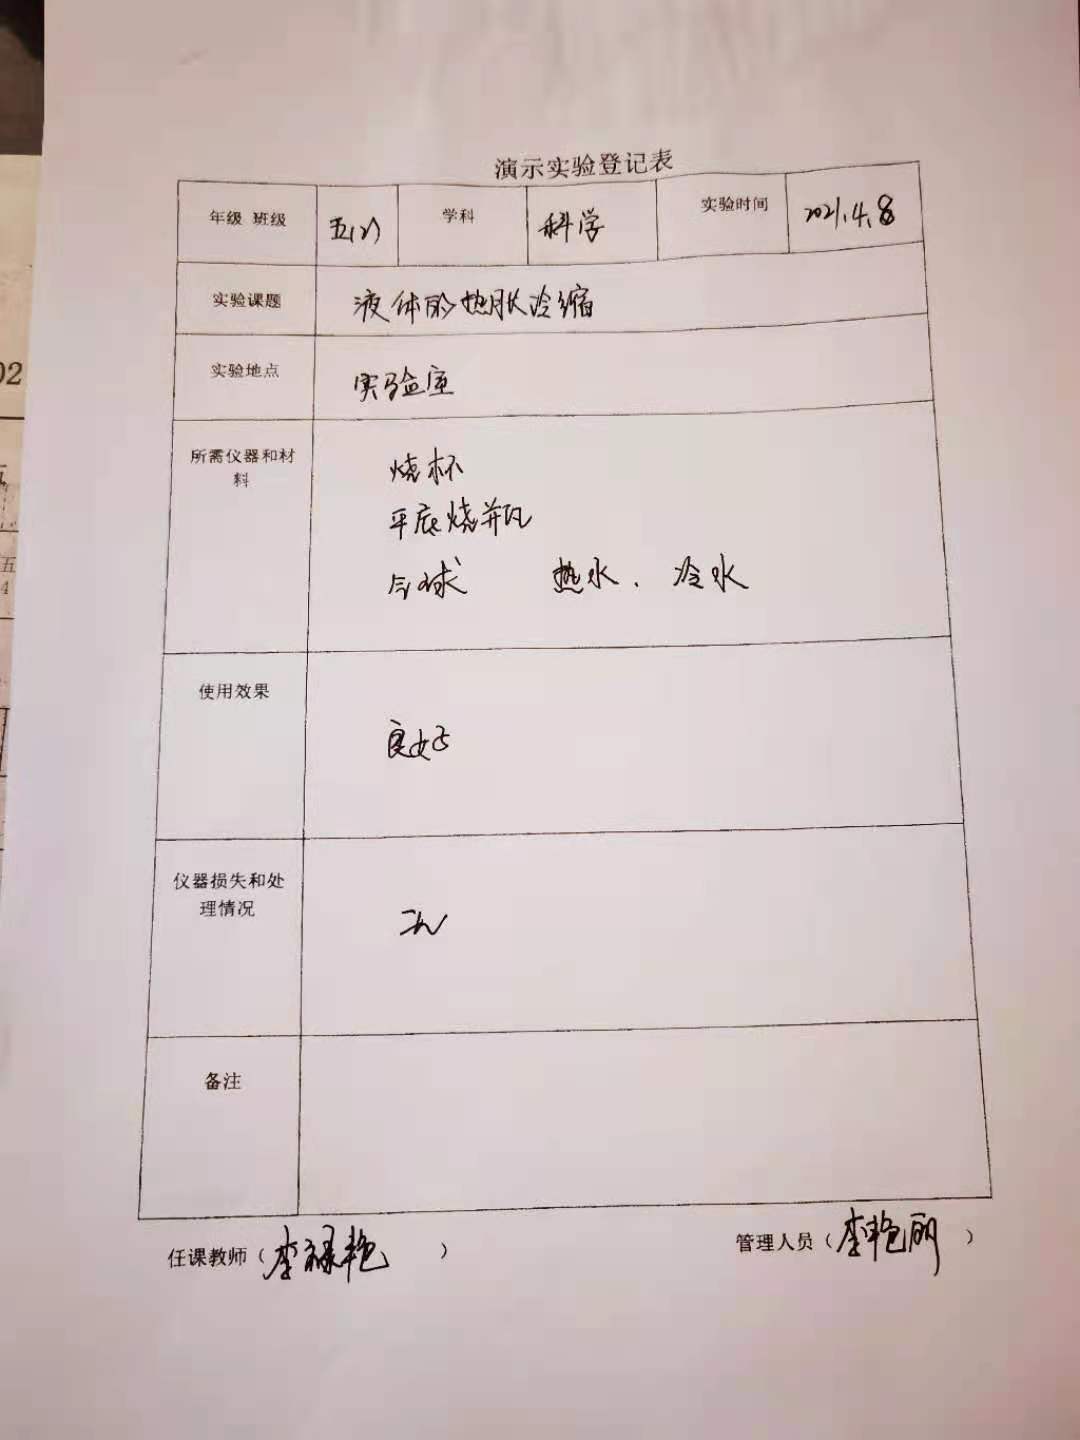 演示实验登记表
年级 班级 五(2) 学科 科学 实验时间 2021.4.8
实验课题 液体的热胀冷缩
实验地点 实验室
所需仪器和材料
烧杯
平底烧瓶
气球 热水、冷水
使用效果 良好
仪器损失和处理情况 无
备注
任课教师(李禄艳)
管理人员(李艳丽)
02
五
4